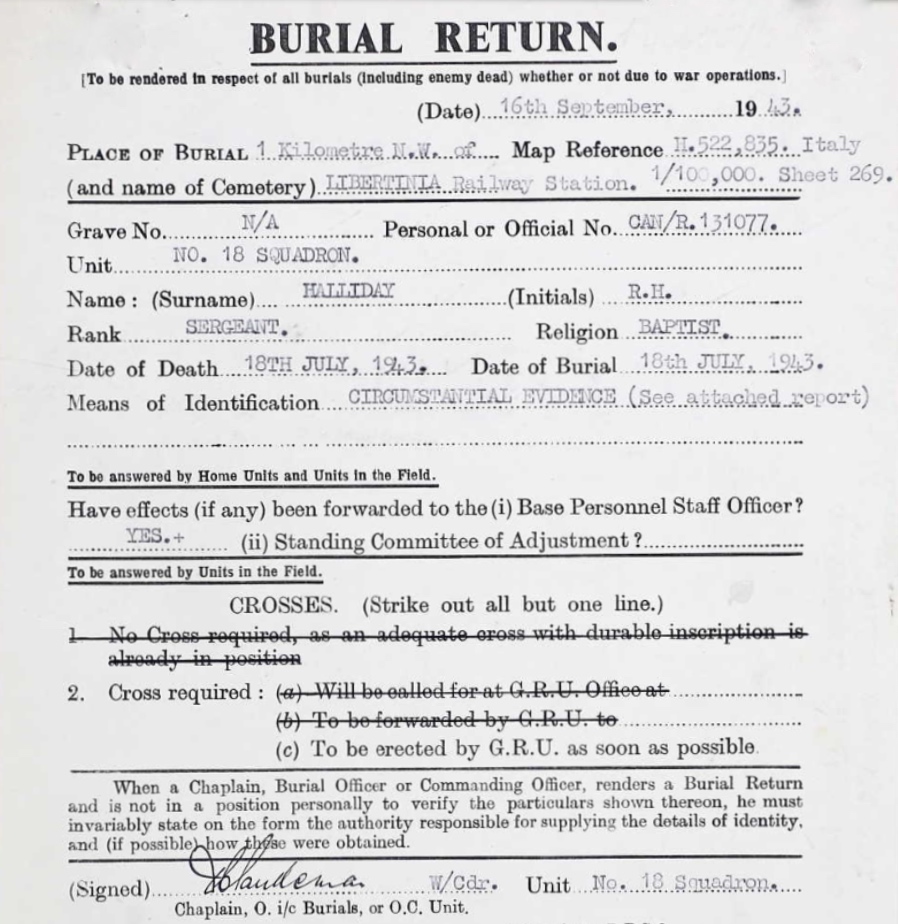 BURIAL RETURN.
[To be rendered in respect of all burials (including enemy dead) whether or not due to war operations.]
(Date) 16th September, 1943.
PLACE OF BURIAL 1 Kilometre N.W. of Map Reference H.522,835. Italy
(and name of Cemetery) LIBERTINIA Railway Station. 1/100,000. Sheet 269.
Grave No. N/A Personal or Official No. CAN/R.131077.
Unit NO. 18 SQUADRON.
Name: (Surname) HALLIDAY (Initials) R.H.
Rank SERGEANT. Religion BAPTIST.
Date of Death 18TH JULY, 1943. Date of Burial 18th JULY, 1943.
Means of Identification CIRCUMSTANTIAL EVIDENCE (See attached report)
To be answered by Home Units and Units in the Field.
Have effects (if any) been forwarded to the (i) Base Personnel Staff Officer?
YES.+ (ii) Standing Committee of Adjustment?
To be answered by Units in the Field.
CROSSES. (Strike out all but one line.)
1 No Cross required, as an adequate cross with durable inscription is
already in position
2. Cross required: (a) Will be called for at G.R.U. Office at
(b) To be forwarded by G.R.U. to
(c) To be erected by G.R.U. as soon as possible.
When a Chaplain, Burial Officer or Commanding Officer, renders a Burial Return
and is not in a position personally to verify the particulars shown thereon, he must
invariably state on the form the authority responsible for supplying the details of identity,
and (if possible) how these were obtained.
(Signed) W/Cdr. Unit No. 18 Squadron.
Chaplain, O. i/c Burials, or O.C. Unit.